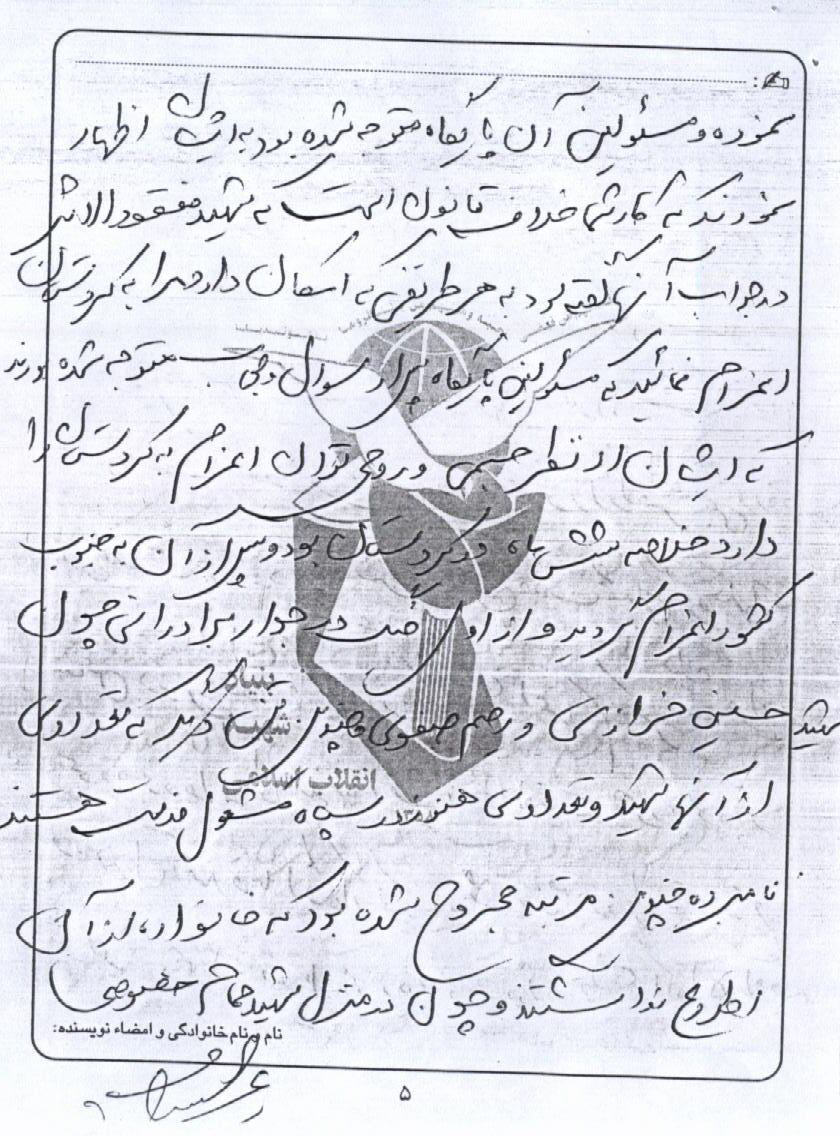 نموده و مسئولین آن پایگاه متوجه شده بود به ایشان اظهار
نمودند که کار شما خلاف قانون است که شهید مفقودالاثر
در جواب آنها گفته بود به هر طریقی که امکان دارد مرا به کردستان
اعزام نمائید که مسئولین پایگاه پس از سوال و جواب متوجه شده بودند
که ایشان از نظر جسمی و روحی توان اعزام به کردستان را
دارد خلاصه شش ماه در کردستان بود و پس از آن به جنوب
کشور اعزام گردید و از اول جنگ در جوار برادرانی چون
شهید حسین خرازی و رحیم صفوی می جنگیدند که تعدادی
از آنها شهید و تعدادی هنوز در سپاه مشغول خدمت هستند
نامبرده چندین مرتبه مجروح شده بود که خانواده از آن
اطلاع نداشتند و چون در منزل شهید حمام خصوصی
نام و نام خانوادگی و امضاء نویسنده:
۵
بنیاد
شهید
انقلاب اسلامی